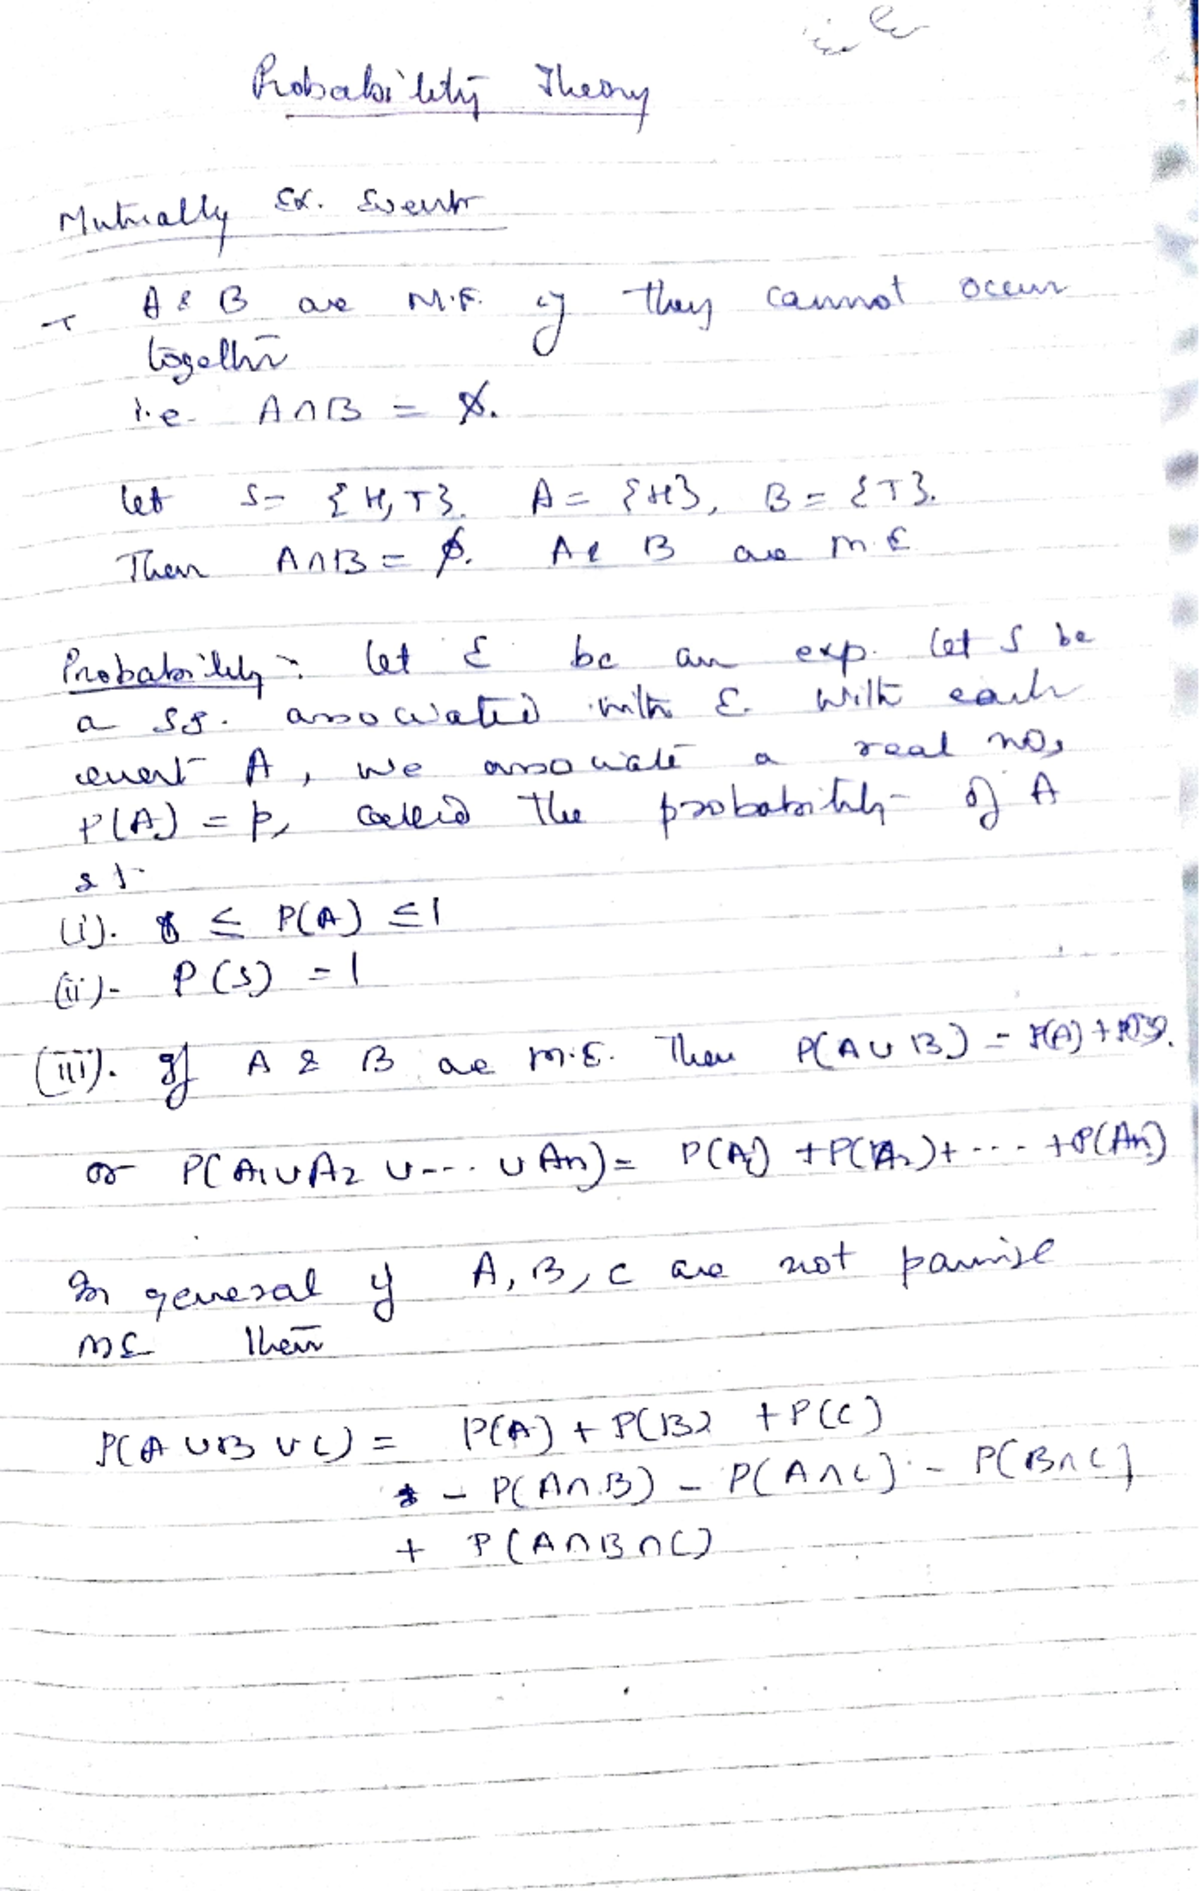 Probability Theory
Mutually Ex. Events
→ A & B are M.E. if they cannot occur
together
i.e. A∩B = ∅.
let S = {H, T}. A = {H}, B = {T}.
Then A∩B = ∅. A & B are M.E
Probability :- let E be an exp. let S be
a SS. associated with E. With each
event A, we associate a real no,
P(A) = p, called the probability of A
s.t.
(i). 0 ≤ P(A) ≤ 1
(ii)- P(S) = 1
(iii). If A & B are M.E. Then P(A∪B) = P(A) + P(B).
or P(A1∪A2 ∪--- ∪An) = P(A1) + P(A2) + ---- + P(An)
In general if A, B, C are not pairwise
ME then
P(A∪B∪C) = P(A) + P(B) + P(C)
- P(A∩B) - P(A∩C) - P(B∩C)
+ P(A∩B∩C)